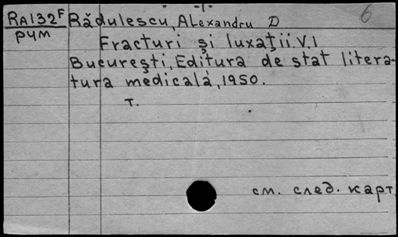 -1-
6
RA132F Rădulescu, Alexandru D
рум
Fracturi şi luxaţii. V. I
Bucureşti, Editura de stat litera-
tura medicală, 1950.
т.
см. след. карт.